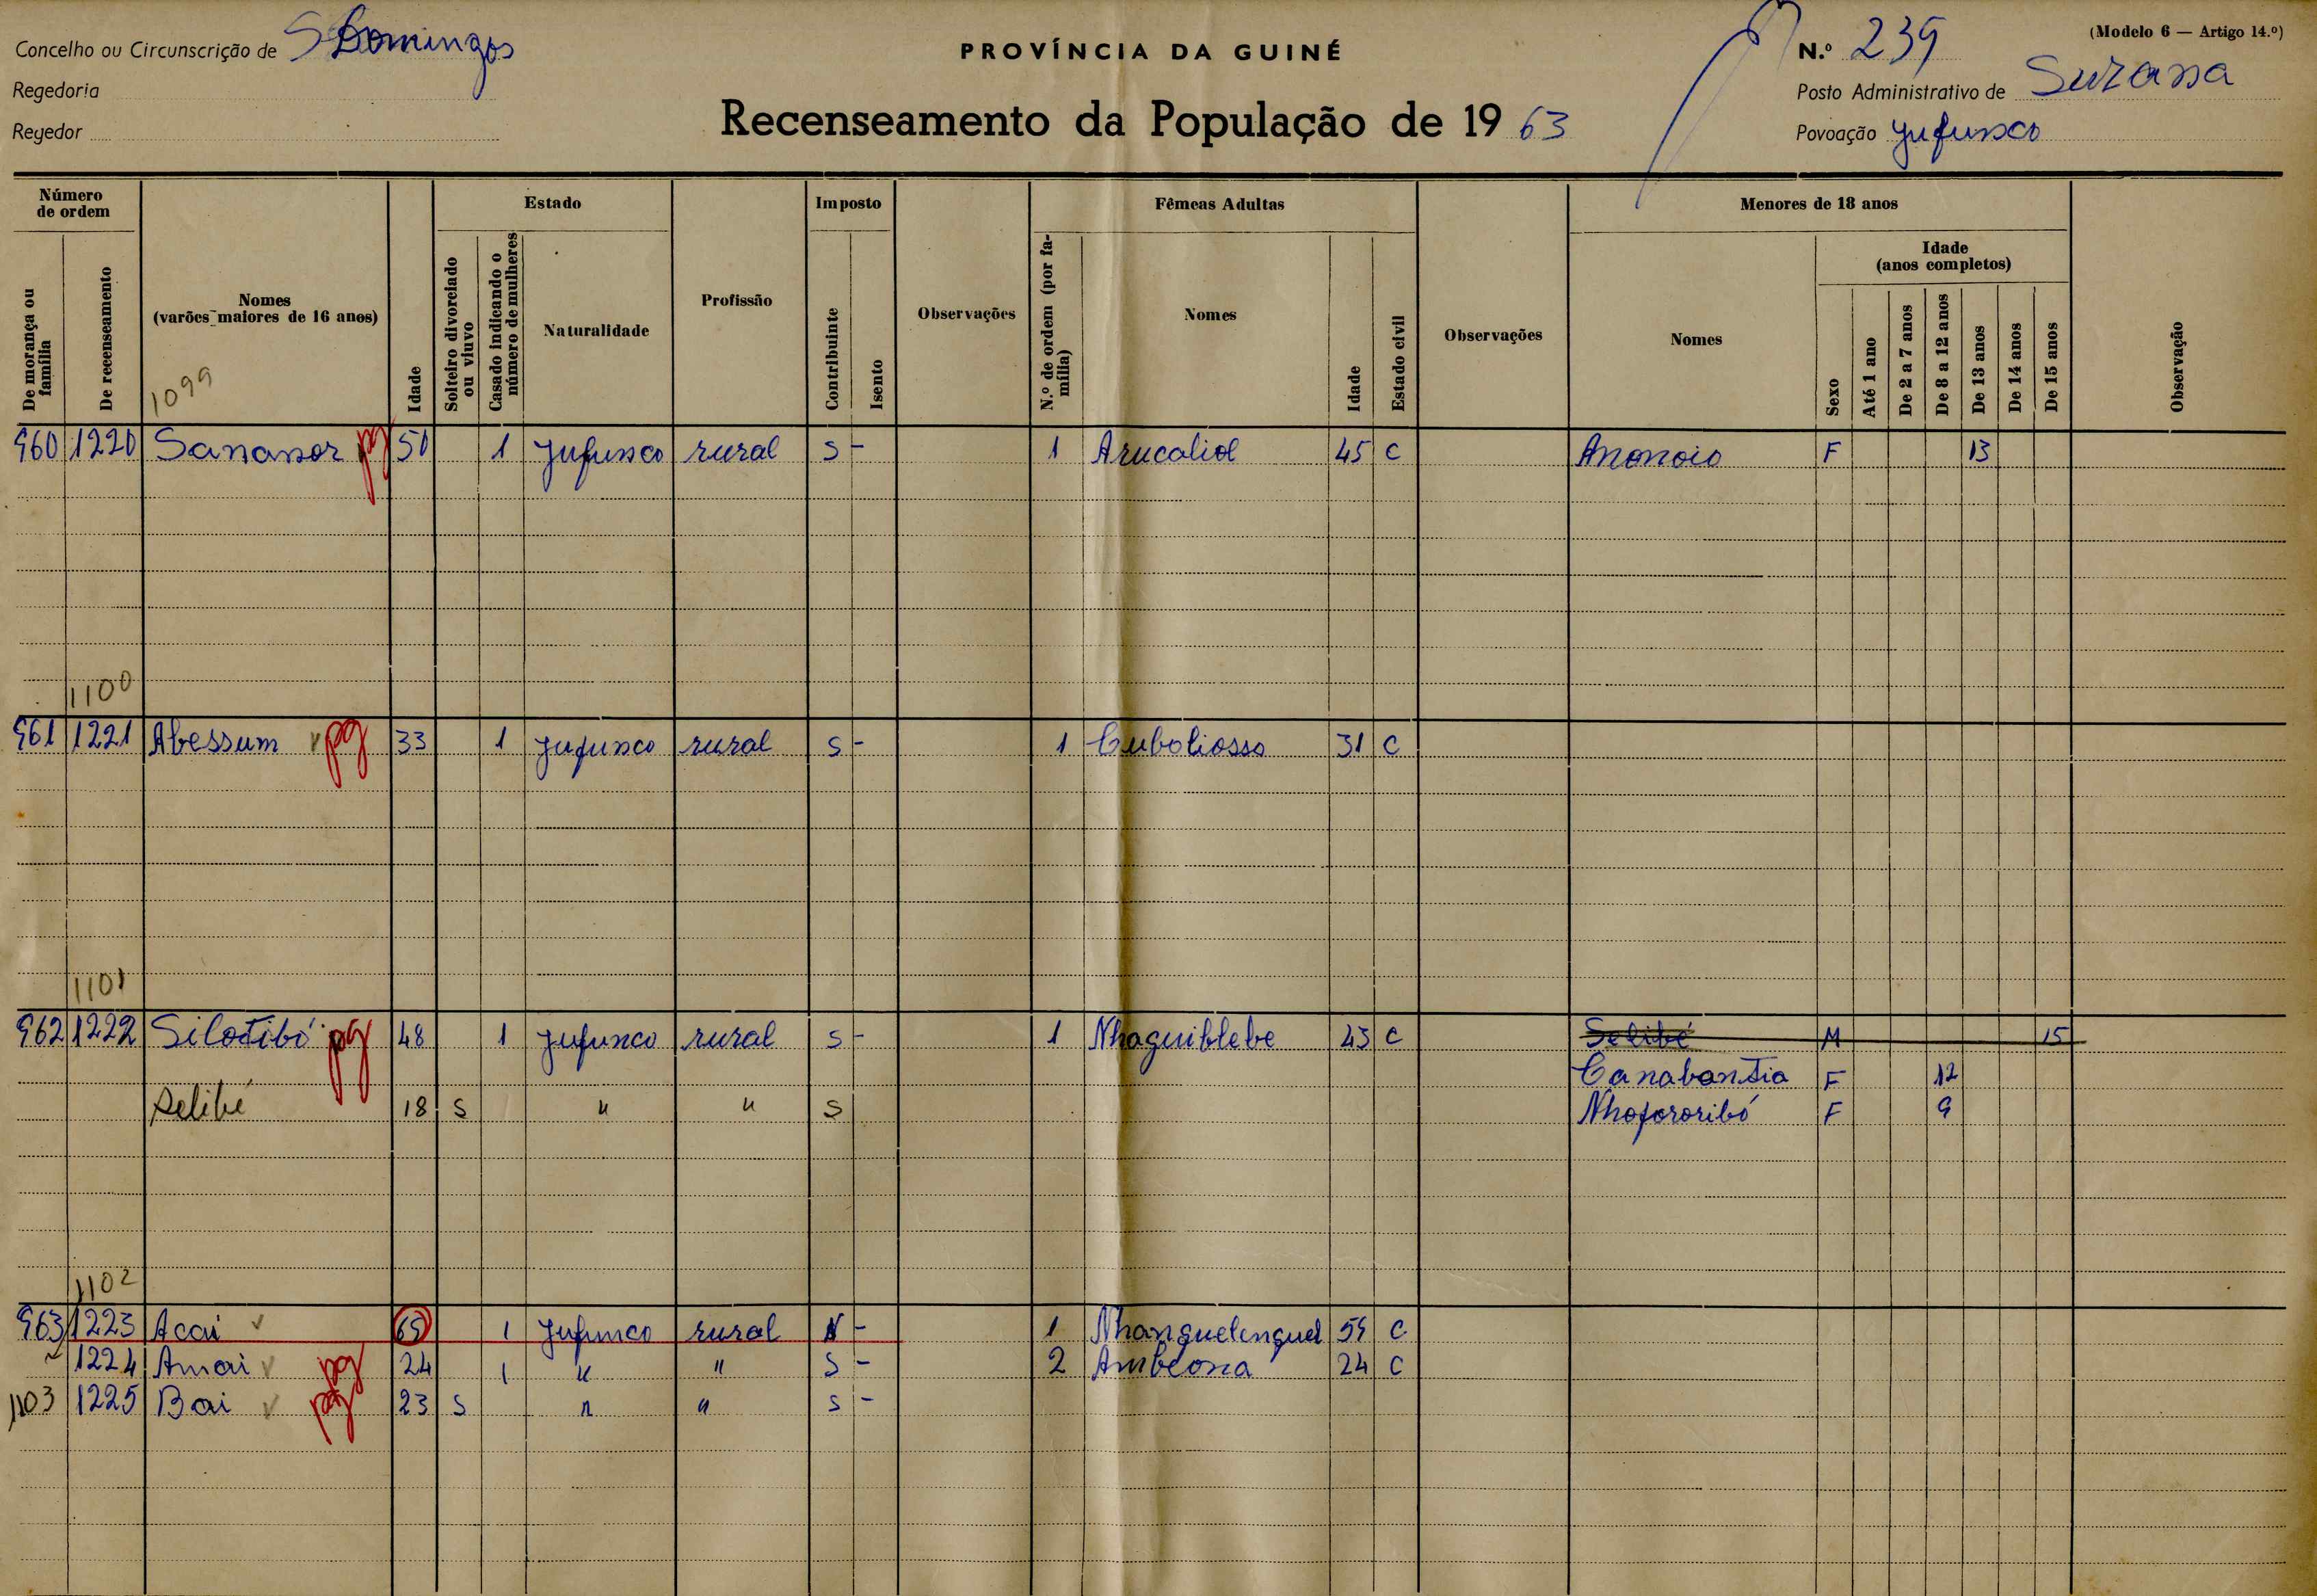 Concelho ou Circunscrição de S Domingos
Regedoria
Regedor
PROVÍNCIA DA GUINÉ
Recenseamento da População de 19 63
(Modelo 6 — Artigo 14.º)
N.º 239
Posto Administrativo de Suzana
Povoação Jufunco
Número de ordem
De morança ou família
De recenseamento
Nomes (varões maiores de 16 anos)
1099
Idade
Estado
Solteiro divorciado ou viuvo
Casado indicando o número de mulheres
Naturalidade
Profissão
Imposto
Contribuinte
Isento
Observações
Fêmeas Adultas
N.º de ordem (por família)
Nomes
Idade
Estado civil
Observações
Menores de 18 anos
Nomes
Sexo
Idade (anos completos)
Até 1 ano
De 2 a 7 anos
De 8 a 12 anos
De 13 anos
De 14 anos
De 15 anos
Observação
960 1220 Sanansor pg 50 1 Jufunco rural S - 1 Arucaliol 45 C Anonoio F 13
1100
961 1221 Abessum pg 33 1 Jufunco rural S - 1 Cuboliosso 31 C
1101
962 1222 Silotibó pg 48 1 Jufunco rural S - 1 Nhaguiblebe 43 C Selibé M 15
Canabantia F 12
Selibé 18 S " " S Nhofororibó F 9
1102
963 1223 Acai 65 1 Jufunco rural N - 1 Nhanguelenguel 59 C
1224 Amai pg 24 1 " " S - 2 Ambeona 24 C
1103 1225 Bai pg 23 S " " S -